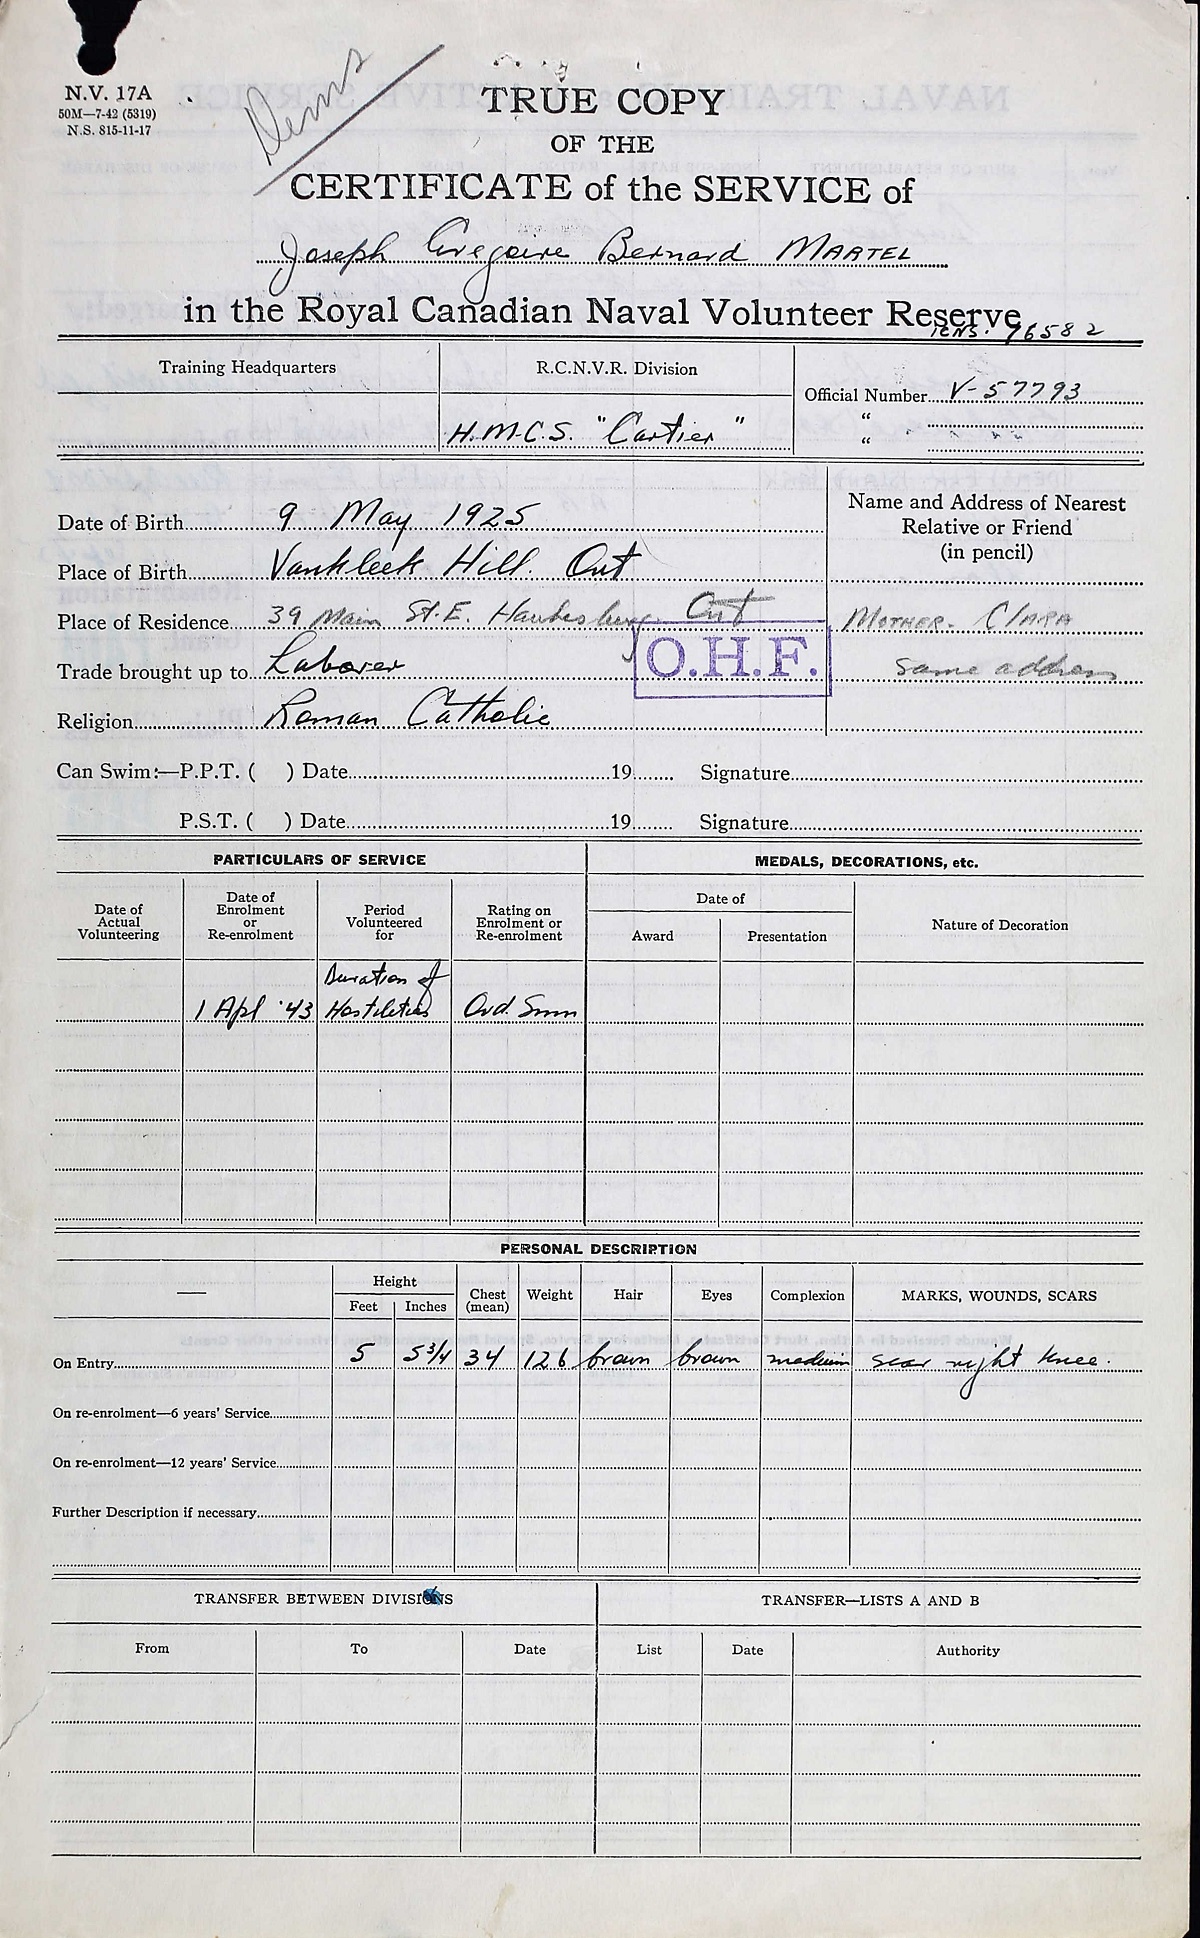 N.V. 17A
50M—7-42 (5319)
N.S. 815-11-17
Dems
TRUE COPY
OF THE
CERTIFICATE of the SERVICE of
Joseph Gregoire Bernard MARTEL
in the Royal Canadian Naval Volunteer Reserve
76582
Training Headquarters
R.C.N.V.R. Division
H.M.C.S. "Cartier"
Official Number V-57793
"
"
Date of Birth 9 May 1925
Place of Birth Vankleek Hill. Ont
Place of Residence 39 Main St. E. Hawkesbury Ont
Trade brought up to Laborer
Religion Roman Catholic
O.H.F.
Name and Address of Nearest
Relative or Friend
(in pencil)
MOTHER. CLARA
same address
Can Swim:—P.P.T. ( ) Date 19 Signature
P.S.T. ( ) Date 19 Signature
PARTICULARS OF SERVICE
MEDALS, DECORATIONS, etc.
Date of Actual Volunteering
Date of Enrolment or Re-enrolment
Period Volunteered for
Rating on Enrolment or Re-enrolment
Date of
Award
Presentation
Nature of Decoration
1 Apl '43
Duration of
Hostilities
Ord. Smn
PERSONAL DESCRIPTION
—
Height
Feet
Inches
Chest (mean)
Weight
Hair
Eyes
Complexion
MARKS, WOUNDS, SCARS
On Entry 5 5 3/4 34 126 brown brown medium scar right knee.
On re-enrolment—6 years' Service
On re-enrolment—12 years' Service
Further Description if necessary
TRANSFER BETWEEN DIVISIONS
TRANSFER—LISTS A AND B
From
To
Date
List
Date
Authority